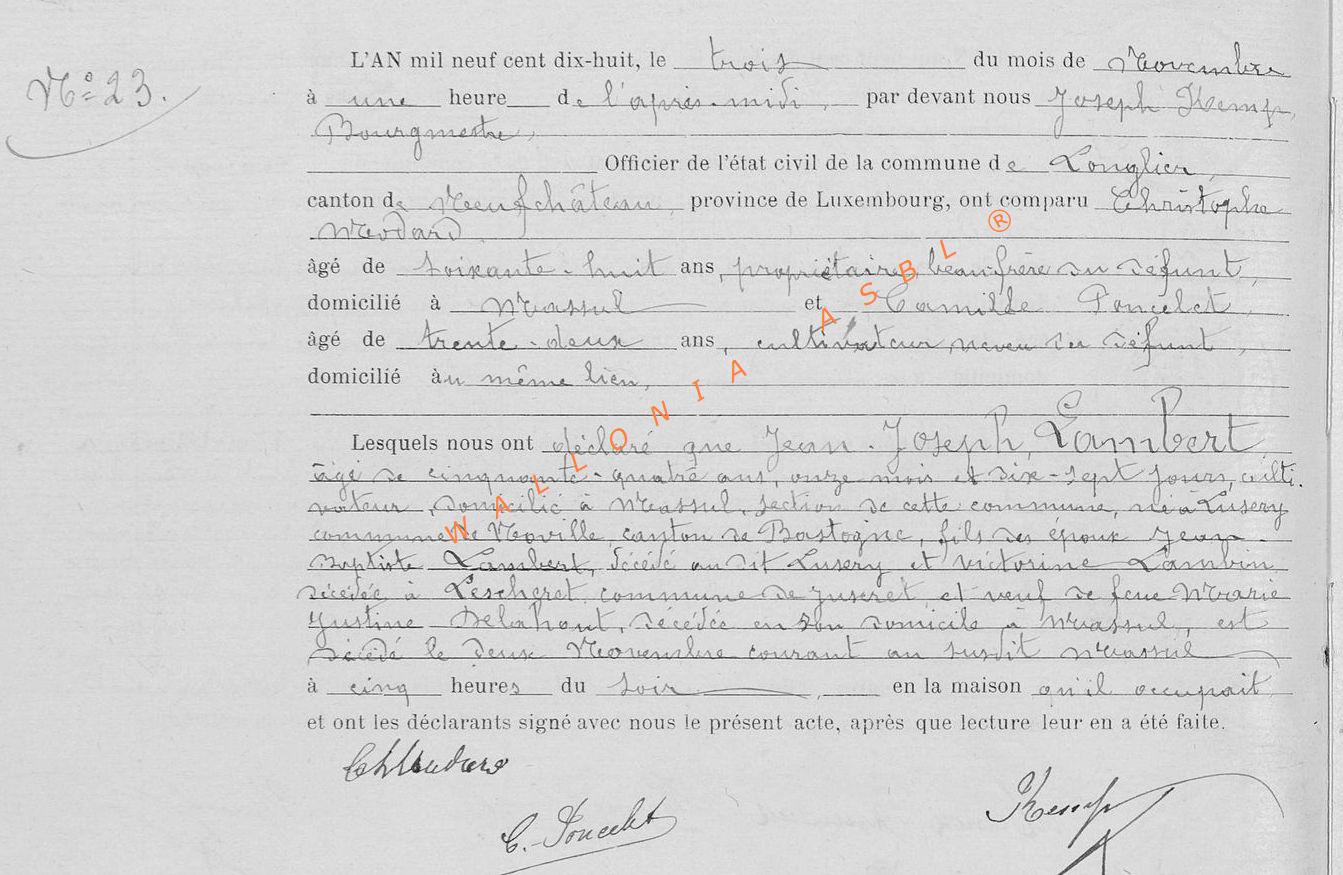 N° 23.
L'AN mil neuf cent dix-huit, le trois du mois de Novembre
à une heure de l'après-midi, par devant nous Joseph Kemp,
Bourgmestre,
Officier de l'état civil de la commune de Longlier,
canton de Neufchâteau, province de Luxembourg, ont comparu Christophe
Médard
âgé de soixante-huit ans, propriétaire, beau-frère du défunt,
domicilié à Massul et Camille Poncelet,
âgé de trente-deux ans, cultivateur, neveu du défunt,
domicilié au même lieu,
Lesquels nous ont déclaré que Jean-Joseph Lambert
âgé de cinquante-quatre ans, onze mois et dix-sept jours, culti-
vateur, domicilié à Massul, section de cette commune, né à Lusery
commune de Noville, canton de Bastogne, fils des époux Jean-
Baptiste Lambert, décédé au dit Lusery et Victorine Lambin,
décédée à Lescheret, commune de Juseret et veuf de feue Marie
Justine Delahout, décédée en son domicile à Massul, est
décédé le deux Novembre courant au susdit Massul
à cinq heures du soir, en la maison qu'il occupait
et ont les déclarants signé avec nous le présent acte, après que lecture leur en a été faite.
Ch Médard
C. Poncelet
Kemp
WALLONIA ASBL ®